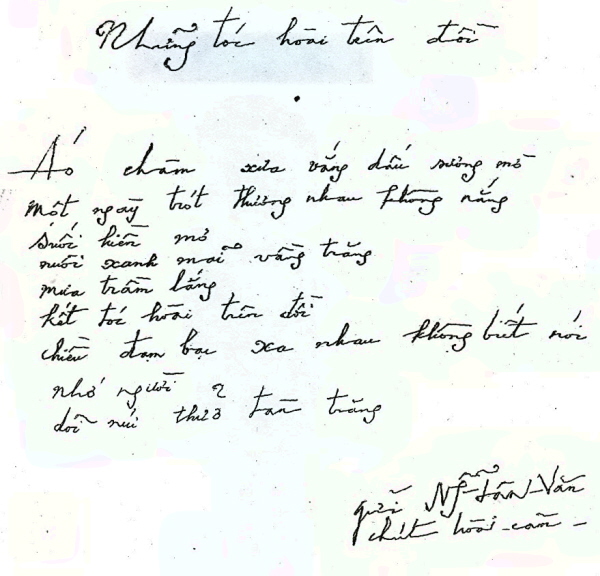 Những tóc hoài trên đồi
Áo chàm xưa vắng dấu sương mờ
một ngày trót thương nhau không nắng
suối hiền mơ
nuôi xanh mãi vầng trăng
mưa trầm lắng
kết tóc hoài trên đồi
chiều đạm bạc xa nhau không biết nói
nhớ người
dõi núi thuở tàn trăng
gửi Ng~ Tấn Văn
chút hoài cảm